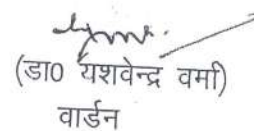 (डा0 यशवेन्द्र वर्मा)
वार्डन